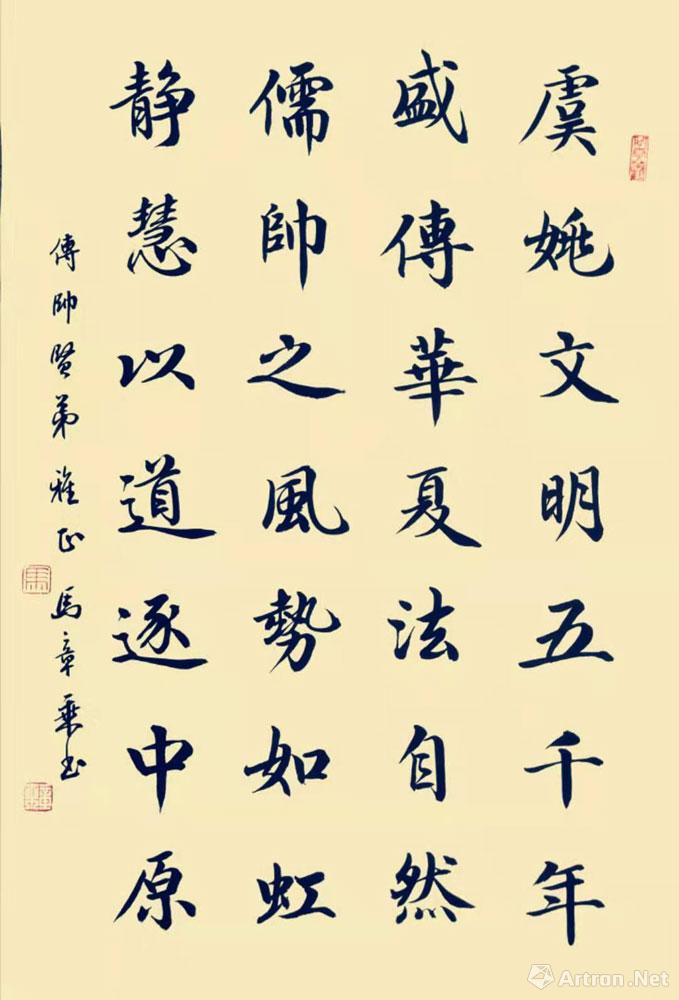 虞姚文明五千年
盛傳華夏法自然
儒帥之風勢如虹
静慧以道逐中原
傳帥賢弟雅正 馬章乗书
Artron.Net